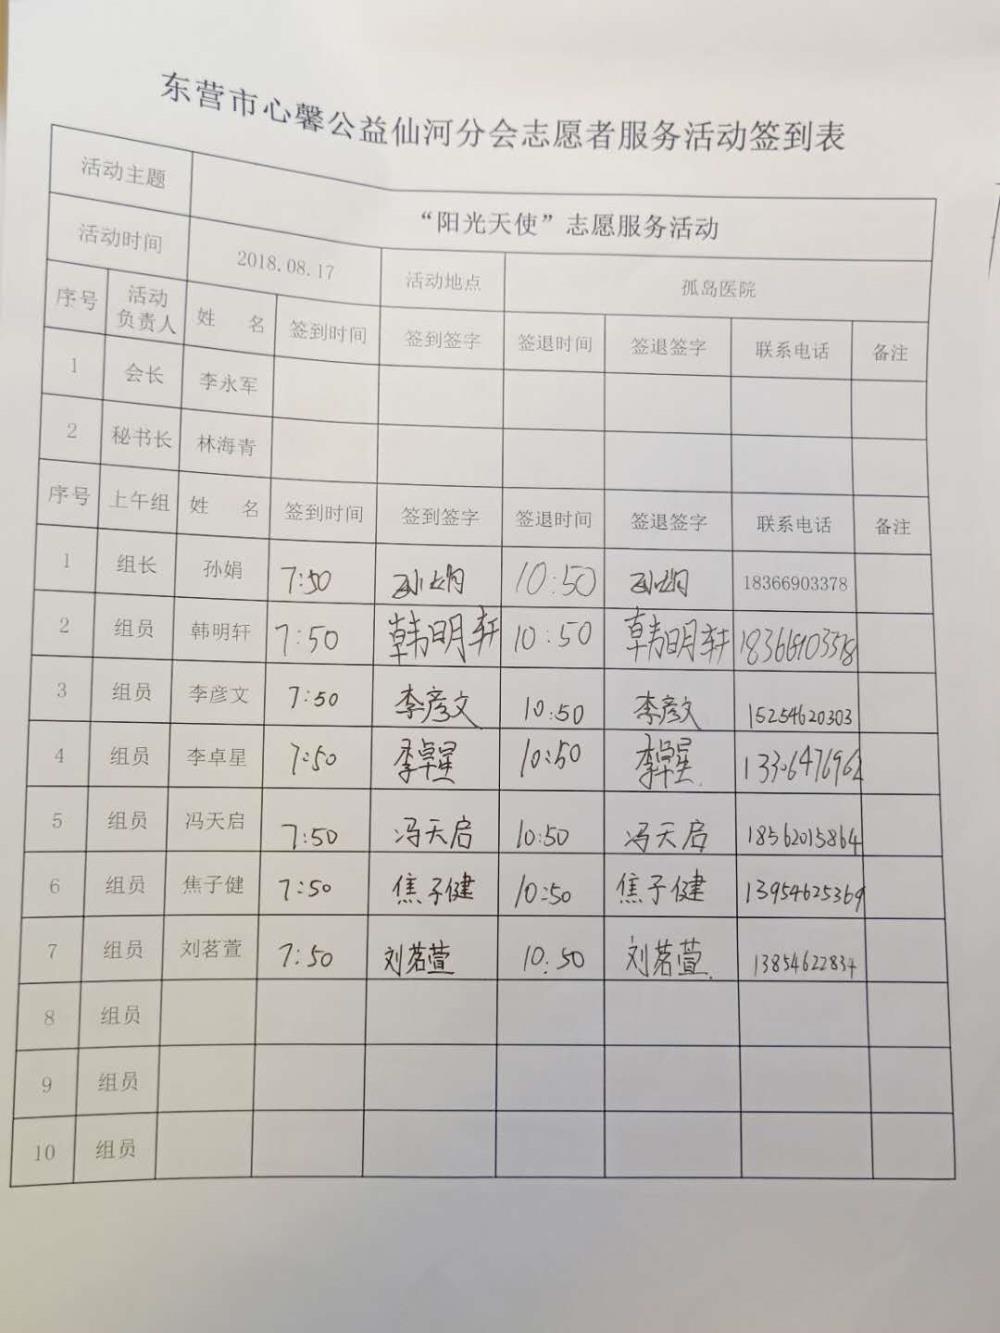 东营市心馨公益仙河分会志愿者服务活动签到表
活动主题 “阳光天使”志愿服务活动
活动时间 2018.08.17 活动地点 孤岛医院
序号 活动负责人 姓 名 签到时间 签到签字 签退时间 签退签字 联系电话 备注
1 会长 李永军
2 秘书长 林海青
序号 上午组 姓 名 签到时间 签到签字 签退时间 签退签字 联系电话 备注
1 组长 孙娟 7:50 孙娟 10:50 孙娟 18366903378
2 组员 韩明轩 7:50 韩明轩 10:50 韩明轩
3 组员 李彦文 7:50 李彦文 10:50 李彦文 15254620303
4 组员 李卓星 7:50 李卓星 10:50 李卓星
5 组员 冯天启 7:50 冯天启 10:50 冯天启 18562015864
6 组员 焦子健 7:50 焦子健 10:50 焦子健 13954625369
7 组员 刘茗萱 7:50 刘茗萱 10:50 刘茗萱 13854622834
8 组员
9 组员
10 组员